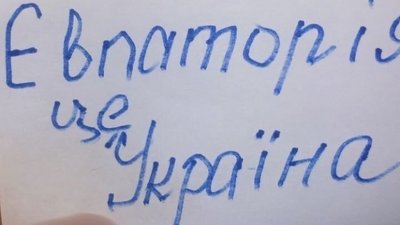 Євпаторія
це
Україна